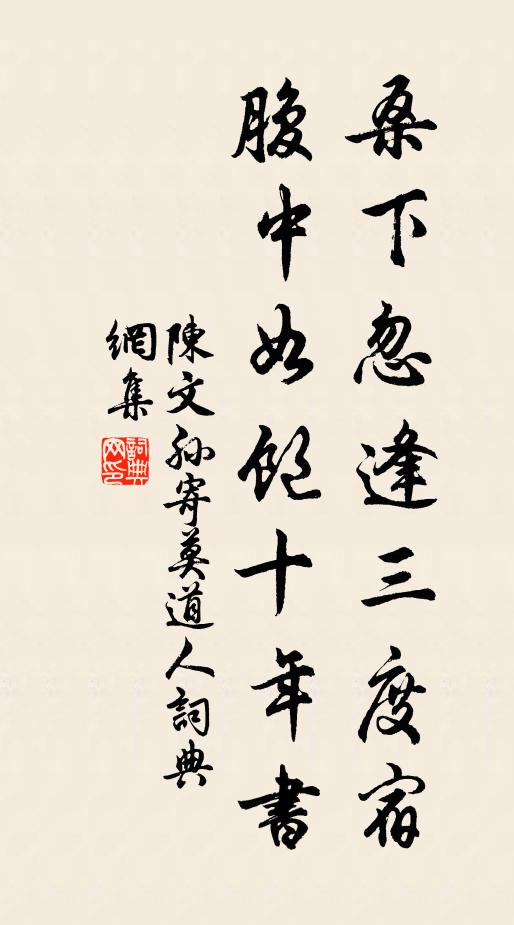 桑下忽逢三度宿
腹中如飽十年書
陳文孫寄莫道人詞典
網集
詞典網印